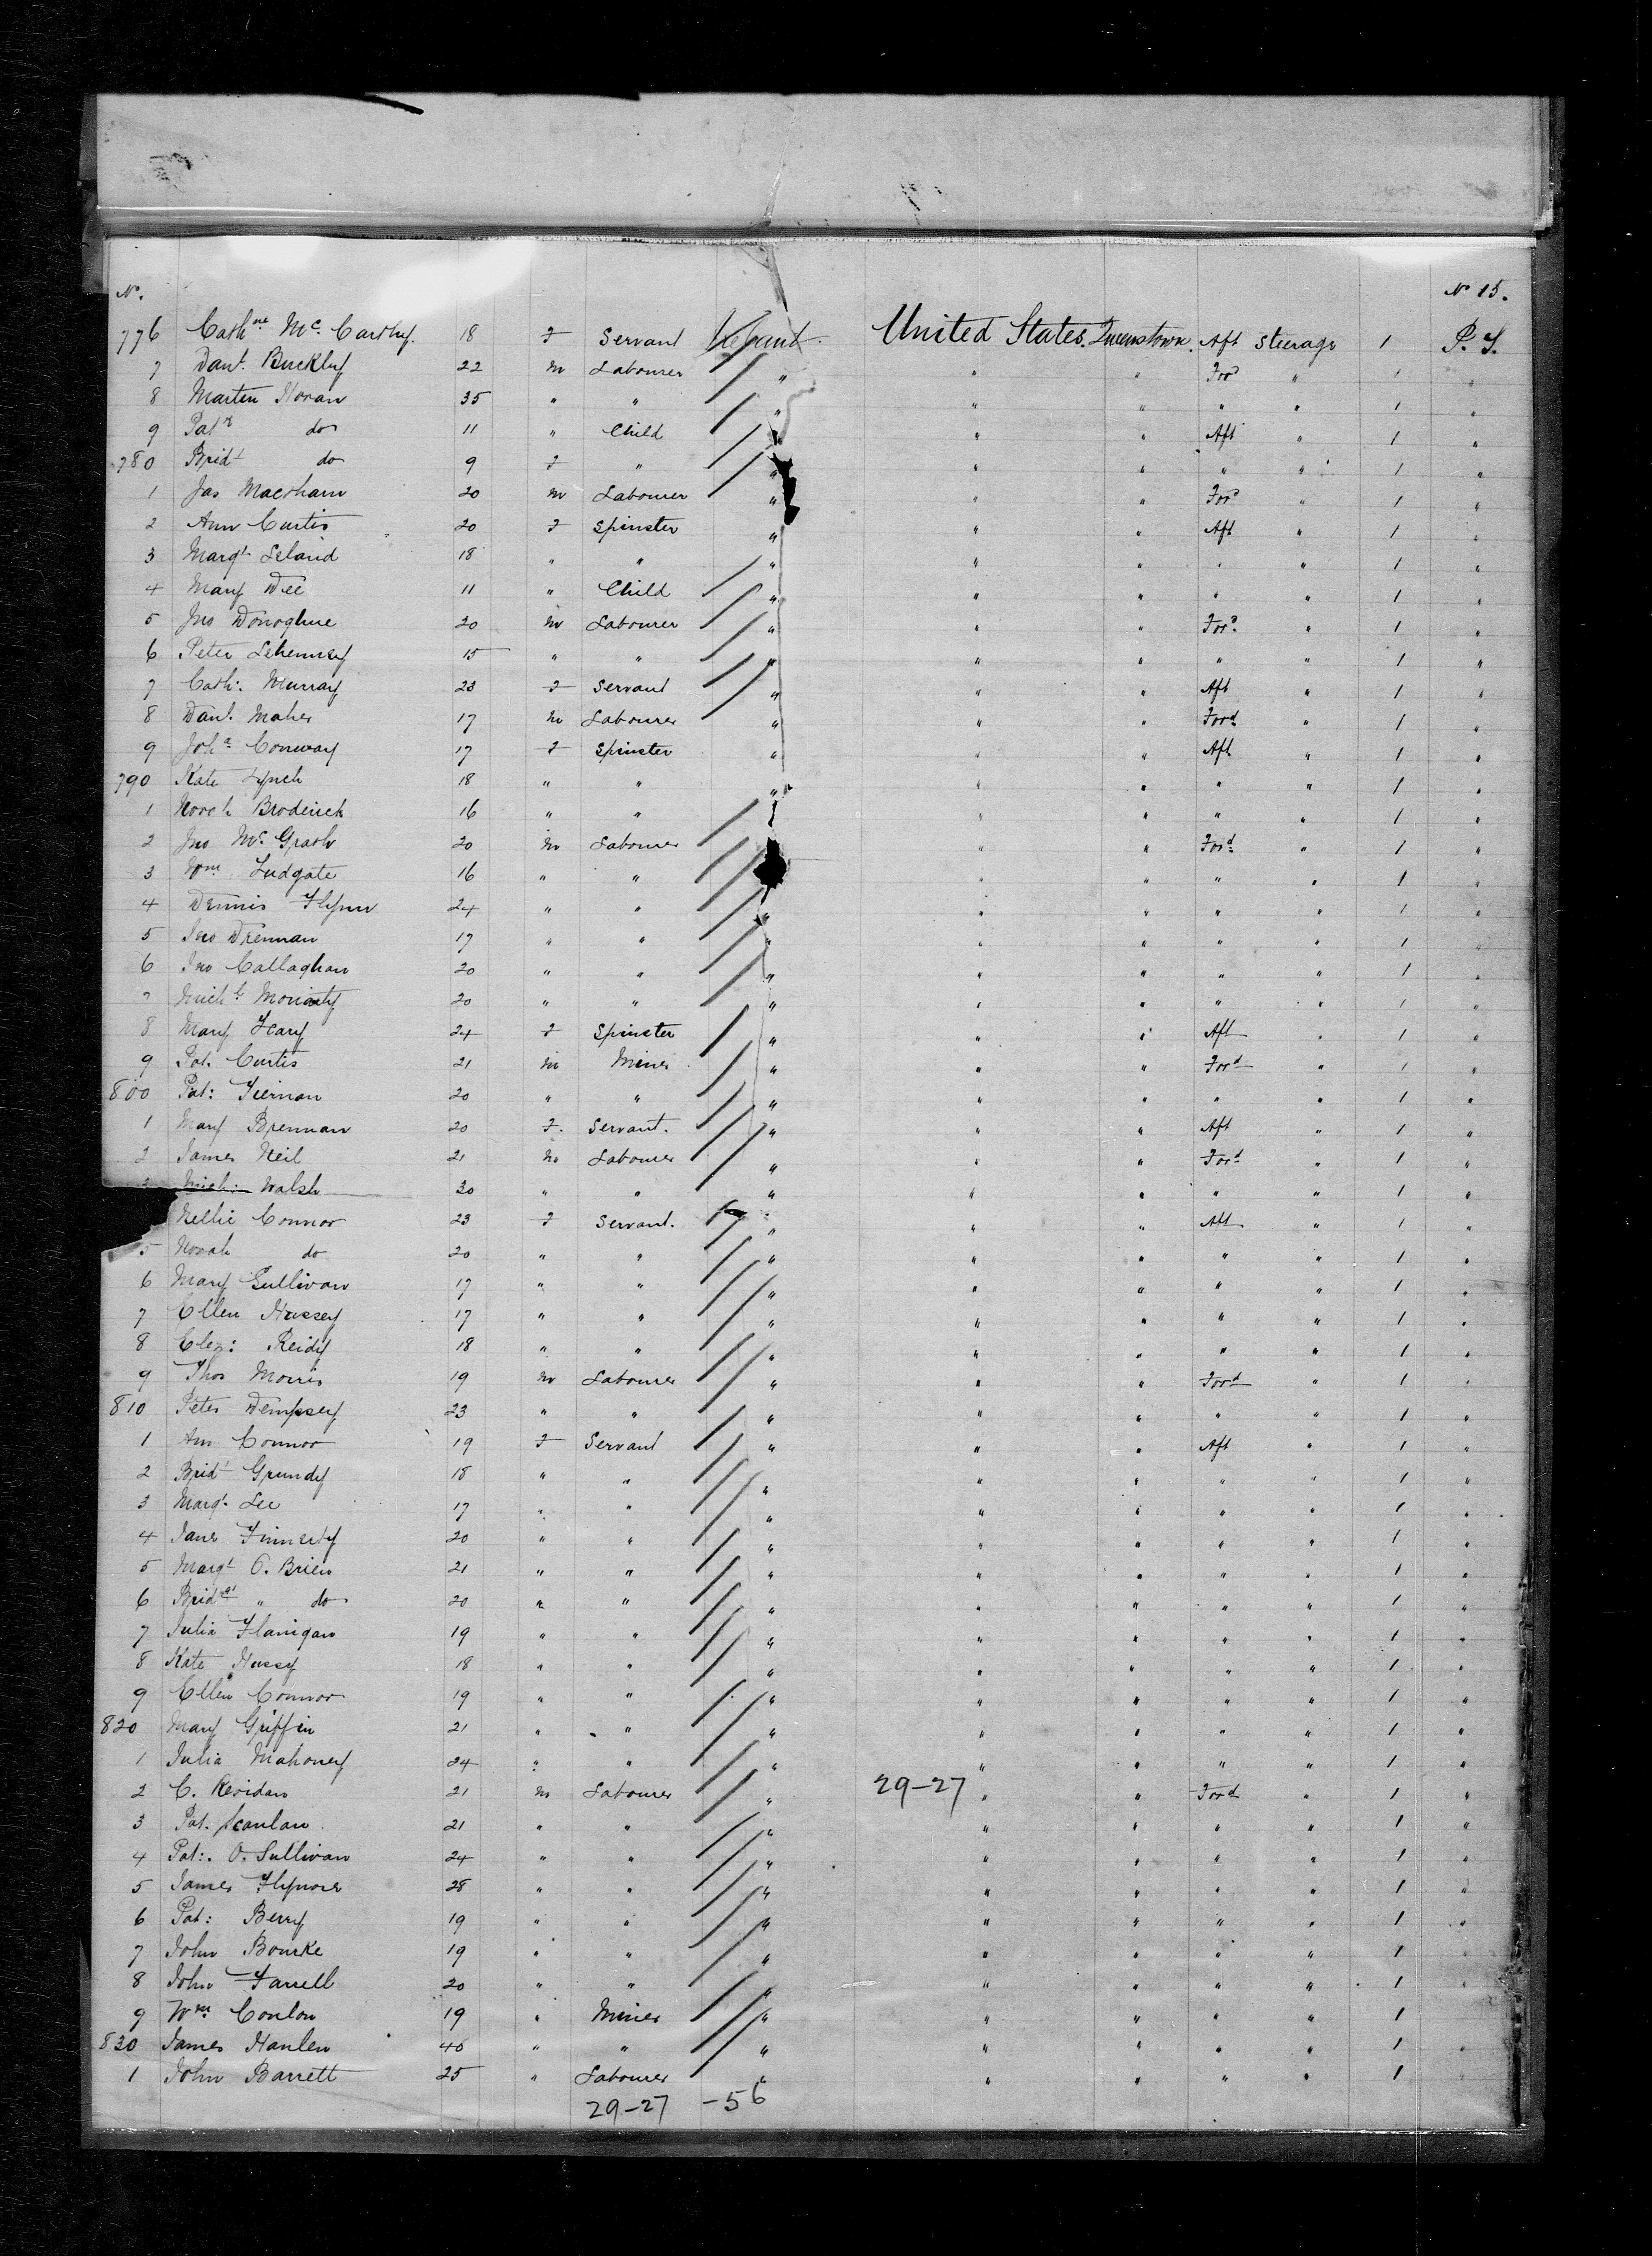 No. No 15.
776 Cathne Mc. Carthy. 18 F Servant United States. Queenstown. Aft Steerage 1 P. S.
7 Danl. Buckley 22 M Labourer " " " Ford " 1 "
8 Martin Horan 35 " " " " " " " 1 "
9 Patk do 11 " Child " " " Aft " 1 "
780 Bridt do 9 F " " " " " " 1 "
1 Jas 20 M Labourer " " " Ford " 1 "
2 Ann Curtis 20 F Spinster " " " Aft " 1 "
3 Margt Leland 18 " " " " " " " 1 "
4 Mary Dee 11 " Child " " " " " 1 "
5 Jno Donoghue 20 M Labourer " " " Ford " 1 "
6 Peter 15 " " " " " " " 1 "
7 Cath: Murray 23 F Servant " " " Aft " 1 "
8 Danl. Maher 17 M Labourer " " " Ford " 1 "
9 Joha Conway 17 F Spinster " " " Aft " 1 "
790 Kate Lynch 18 " " " " " " " 1 "
1 Norah Broderick 16 " " " " " " 1 "
2 Jno Mc. Grath 20 M Labourer " " Ford " 1 "
3 Wm Ludgate 16 " " " " " " 1 "
4 Dennis Flynn 24 " " " " " " " 1 "
5 Jno Drennan 17 " " " " " " " 1 "
6 Jno Callaghan 20 " " " " " " " 1 "
7 Michl Moriarty 20 " " " " " " " 1 "
8 Mary 24 F Spinster " " " Aft " 1 "
9 Pat. Curtis 21 M Miner " " " Ford " 1 "
800 Pat: Tiernan 20 " " " " " " " 1 "
1 Mary Brennan 20 F. Servant. " " " Aft " 1 "
2 James Neil 21 M Labourer " " " Ford " 1 "
3 Mich: Walsh 30 " " " " " " " 1 "
Nellie Connor 23 F Servant. " " " Aft " 1 "
5 Norah do 20 " " " " " " " 1 "
6 Mary Sullivan 17 " " " " " " " 1 "
7 Ellen Hussey 17 " " " " " " " 1 "
8 Eliz: Reidy 18 " " " " " " " 1 "
9 Thos Morris 19 M Labourer " " " Ford " 1 "
810 Peter Dempsey 23 " " " " " " " 1 "
1 Ann Connor 19 F Servant " " " Aft " 1 "
2 Bridt Grundy 18 " " " " " " " 1 "
3 Margt. Lee 17 " " " " " " " 1 "
4 Jane Finnerty 20 " " " " " " " 1 "
5 Margt O. Brien 21 " " " " " " " 1 "
6 Bridgt " do 20 " " " " " " " 1 "
7 Julia Flanigan 19 " " " " " " " 1 "
8 Kate Hussy 18 " " " " " " " 1 "
9 Ellen Connor 19 " " " " " " " 1 "
820 Mary Griffin 21 " " " " " " " 1 "
1 Julia Mahoney 24 " " " " " " " 1 "
2 C. 21 M Labourer " 29-27 " " Ford " 1 "
3 Pat. Scanlan 21 " " " " " " " 1 "
4 Pat:. O. Sullivan 24 " " " " " " " 1 "
5 James 28 " " " " " " " 1 "
6 Pat: Berry 19 " " " " " " " 1 "
7 John Bourke 19 " " " " " " " 1 "
8 John Farrell 20 " " " " " " " 1 "
9 Wm Conlon 19 " Miner " " " " " 1
830 James Hanlen 40 " " " " " " " 1 "
1 John Barrett 25 " Labourer " " " " " 1 "
29-27 -56